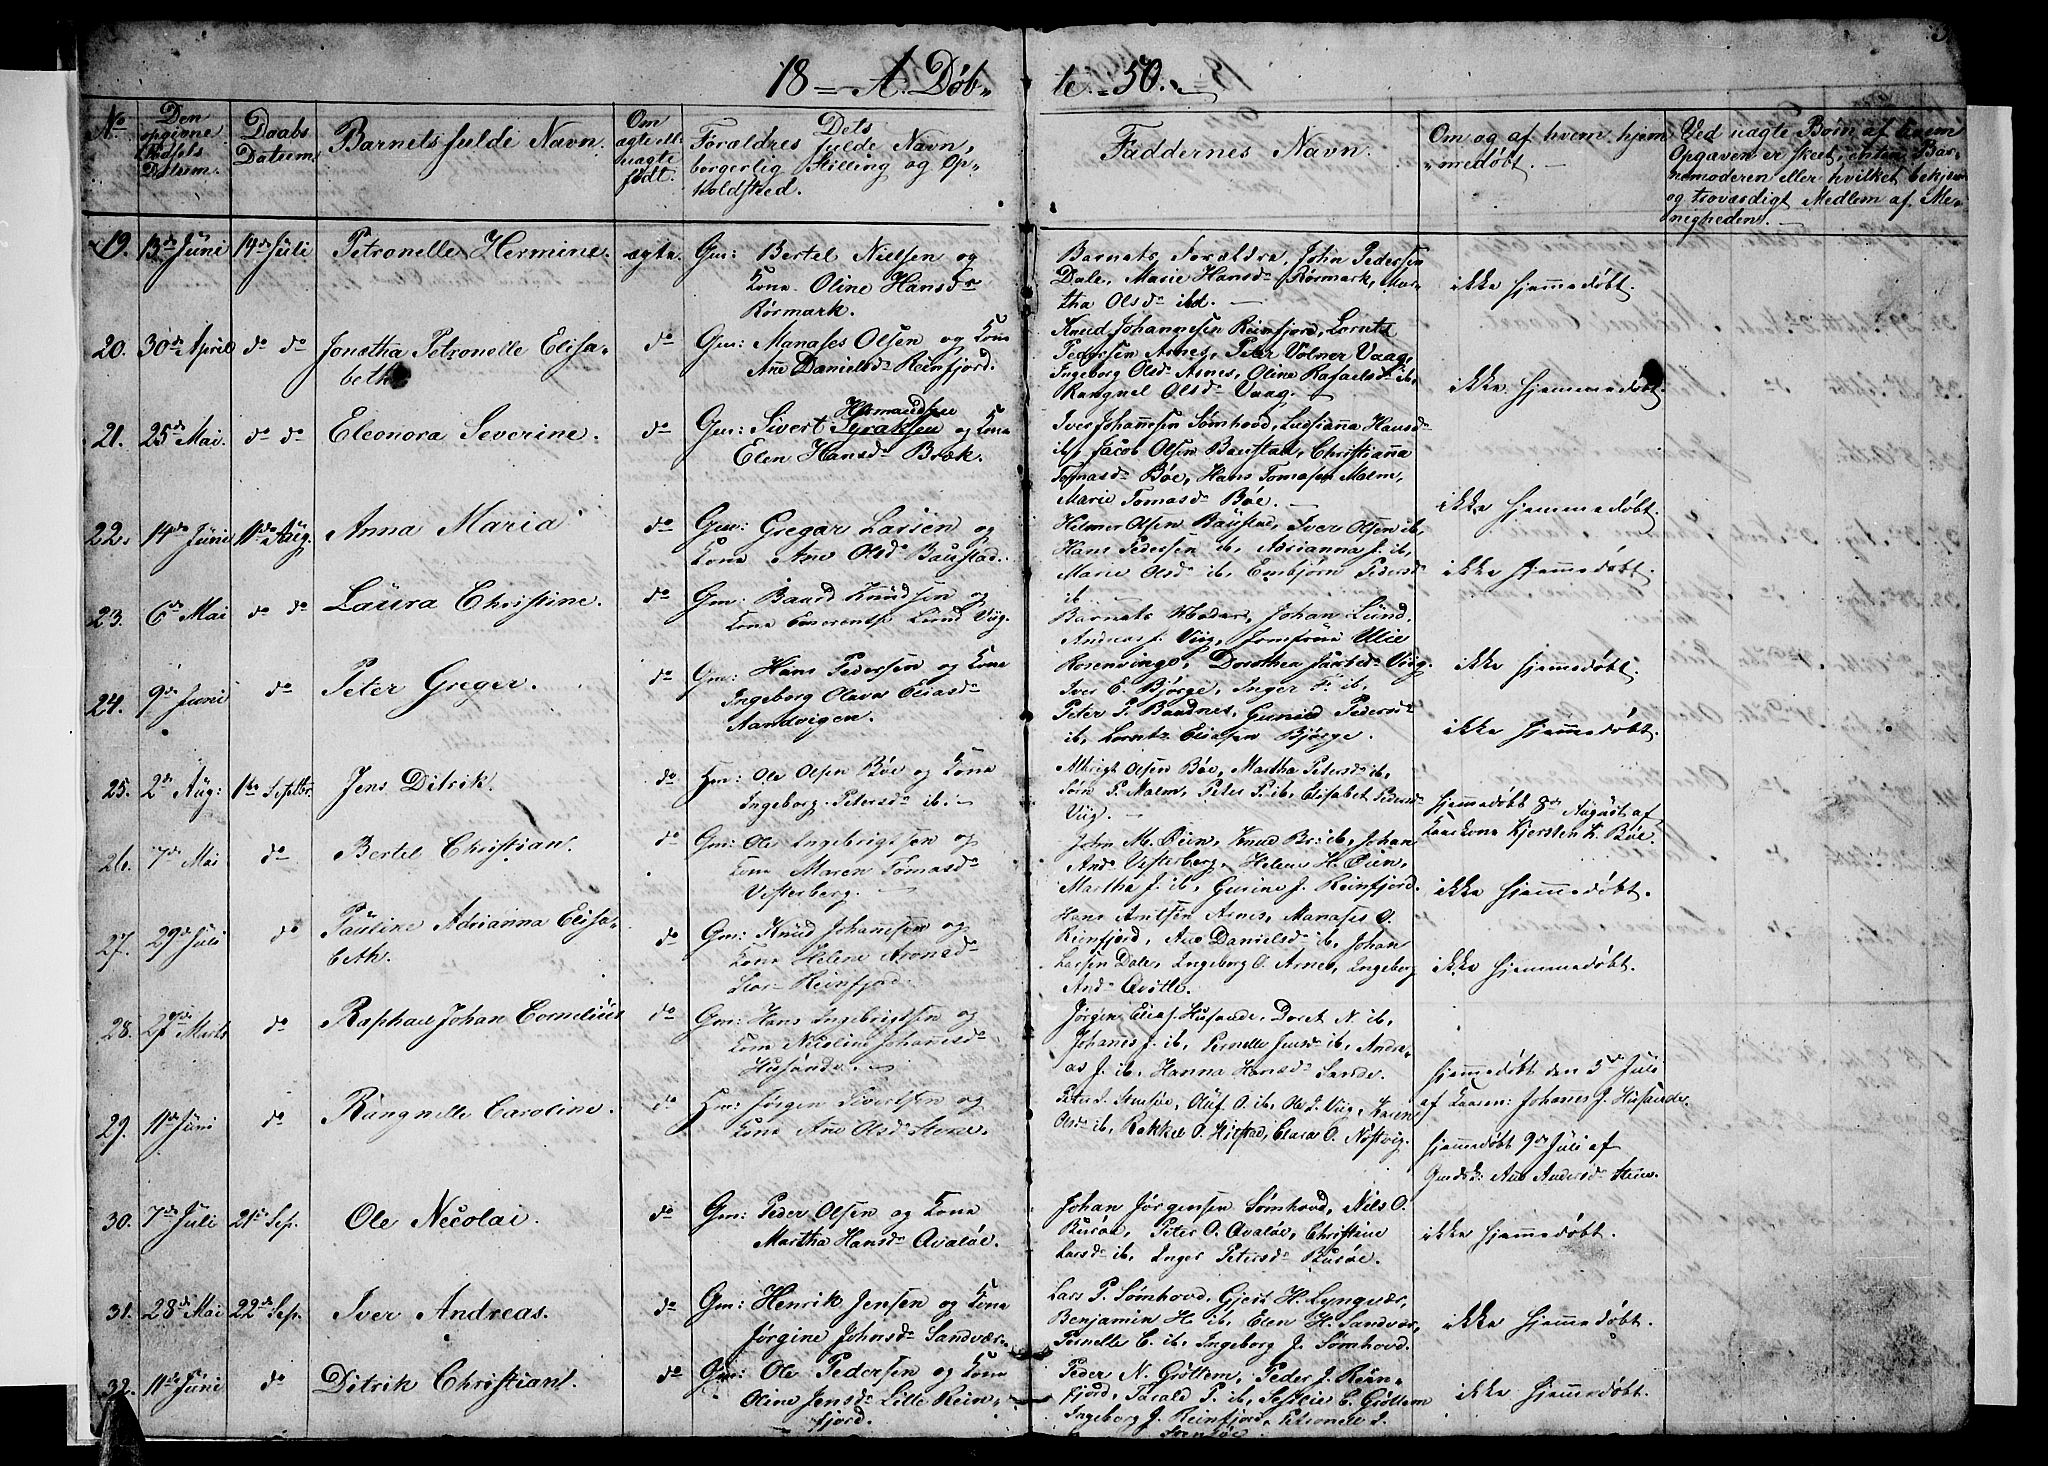 18 – A. Døb-
te. 50.
No
Den opgivne Fødsels Datum.
Daabs Datum
Barnets fulde Navn.
Om ægte ell: uægte født.
Dets Forældres fulde Navn, borgerlig Stilling og Opholdsted.
Faddernes Navn.
Om og af hvem hjemmedøbt.
Ved uægte Børn af hvem
Opgaven er skeet, enten Bar-
nemoderen eller hvilket
og troværdigt Medlem af Me-
nigheden.
19. 13de Juni 14de Juli Petronelle Hermine. ægte. Gm: Bertel Nielsen og
Kona Oline Hansdr
Rørmark.
Barnets Forældre, John Pedersen
Dale, Marie Hansdr Rørmark, Mar-
tha Olsdr ibd.
ikke hjemmedøbt.
20. 30de April do do Jonetha Petronelle Elisa-
beth
do Gm: Manases Olsen og Kona
Ane Danielsdr Reinfjord.
Knud Johannesen Reinfjord, Lornts
Pedersen Arnes, Peter Volner Vaag,
Ingeborg Olsdr Arnes, Oline Rafaelsdr ib,
Rangnel Olsdr Vaag.
ikke hjemmedøbt.
21. 25de Mai. do do Eleonora Severine. do Gm: Sivert og Kona
Elen Hansdr Bræk.
Iver Johannsen Sømhovd, Hansdr
ib, Jacob Olsen Baustad, Christianna
Tomasdr Bøe, Hans Tomasen Malm,
Marie Tomasdr Bøe.
ikke hjemmedøbt.
22. 14de Juni 11de Aug. Anna Maria do Gm: Gregar Larsen og
Kona Ane Olsdr Baustad.
Helmer Olsen Baustad, Iver Olsen ib,
Hans Pedersen ib, Adrianna J. ib,
Marie Olsdr ib, Embjørn Pedersdr
ib.
ikke hjemmedøbt.
23. 6de Mai do do Laura Christine. do Gm: Baard Knudsen og
Kona Emerentse Lund Viig.
Barnets Moder, Johan Lund,
Andreas J. Viig, Jomfrue Ulie
Rosenvinge, Dorothea Viig.
ikke hjemmedøbt.
24. 9de Juni do Peter Greger. do Gm: Hans Pedersen og Kona
Ingeborg Olava Eliasdr
Aandvigen.
Iver E. Bjørge, Inger F. ib,
Peter P. Baadnes, Gunild Pedersdr
ib, Lorntz Eliasen Bjørge.
ikke hjemmedøbt.
25. 2de Aug: 1te Septbr. Jens Ditrik. do Hm: Ole Olsen Bøe og Kona
Ingeborg Petersdr ib.
Albrigt Olsen Bøe, Martha Petersdr ib,
Jørn P. Malm, Peter P. ib, Elisabet Pedersdr
Viig.
hjemmedøbt 8de August af
Kaarkona Kjersten L. Bøe.
26. 7de Mai do Bertel Christian. do Gm: Ole Ingebrigtsen og
Kona Maren Tomasdr
Vesterberg.
John M. Øien, Knud Br: ib, Johan
And: Vesterberg, Helene H. Øien,
Martha J. ib, Gurine J. Reinfjord.
ikke hjemmedøbt.
27. 29de Juli do Pauline Adrianna Elisa-
beth.
do Gm: Knud Johannesen og
Kona Helene Aronsdr
Stor Reinfjord.
Hans Arntsen Arnes, Manases O.
Reinfjord, Ane Danielsdr ib, Johan
Larsen Dale, Ingeborg O. Arnes, Ingeborg
And:
ikke hjemmedøbt.
28. 27de Marts do Raphael Johan Cornelius do Gm: Hans Ingebrigtsen og
Kona Nicoline Johannesdr
Husande.
Jørgen Elias. Husande, Doret N. ib,
Johannes J. ib, Pernelle Jensdr ib, Andre-
as J. ib, Hanna Hansdr Sande.
hjemmedøbt den 5de Juli
af Kaaren: Johannes J. Husande.
29. 11de Juni do Rangnelle Caroline. do Hm: Jørgen Sivertsen og
Kona Ane Olsdr
Peter J. Oluf O. ib, Ole J. Viig, Karen
Olsdr ib, Rakkel O. Clara O. Nøstvig.
hjemmedøbt 9de Juli af
Gaardsk: Ane Andersdr
30. 7de Juli 21de Sep. Ole Necolai. do Gm: Peder Olsen og Kona
Martha Hansdr Avaløe.
Johan Jørgensen Sømhovd, Niels O.
Burøe, Peter O. Avaløe, Christine
Larsdr ib, Inger Petersdr Burøe.
ikke hjemmedøbt.
31. 28de Mai 22de Sep. Iver Andreas. do Gm: Henrik Jensen og Kona
Jørgine Johnsdr Sandvær.
Lars P. Sømhovd, Gjert H. Lyngvær,
Benjamin H. ib, Elen H. Sandvær,
Pernelle E. ib, Ingeborg J. Sømhovd.
ikke hjemmedøbt.
32. 11de Juni do Ditrik Christian. do Gm: Ole Pedersen og Kona
Oline Jensdr Lille Rein-
fjord.
Peder N. Grøttem, Peder J. Rein-
fjord, Tarald P. ib, E. Grøttem
Ingeborg J. Reinfjord, Petronele J.
ikke hjemmedøbt.